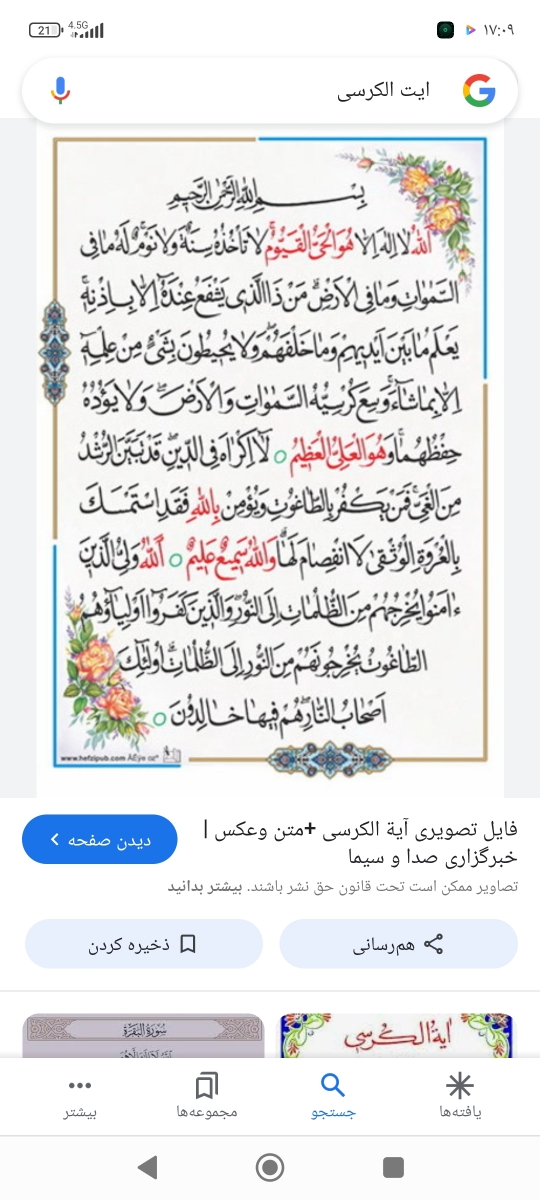 21
4.5G
۱۷:۰۹
ایت الکرسی
بِسْمِ اللهِ الرَّحْمٰنِ الرَّحِيمِ
اَللهُ لا اِلٰهَ اِلا هُوَ الْحَیُّ الْقَيُّومُ لا تَأْخُذُهُ سِنَةٌ وَلا نَوْمٌ لَهُ ما فِی
السَّمٰوٰاتِ وَما فِی الاَرْضِ مَنْ ذَا الَّذی يَشْفَعُ عِنْدَهُ اِلا بِاِذْنِهِ
يَعْلَمُ ما بَيْنَ اَيْديهِمْ وَما خَلْفَهُمْ وَلا يُحيطُونَ بِشَیْءٍ مِنْ عِلْمِهِ
اِلا بِما شاءَ وَسِعَ كُرْسِيُّهُ السَّمٰوٰاتِ وَ الاَرْضَ وَ لا يَؤُدُهُ
حِفْظُهُما وَ هُوَ الْعَلِیُّ الْعَظيمُ لا اِكْراهَ فِی الدّينِ قَدْ تَبَيَّنَ الرُّشْدُ
مِنَ الْغَیِّ فَمَنْ يَكْفُرْ بِالطّاغُوتِ وَيُؤْمِنْ بِاللهِ فَقَدِ اسْتَمْسَكَ
بِالْعُرْوَةِ الْوُثْقىٰ لا انْفِصامَ لَها وَاللهُ سَميعٌ عَليمٌ اَللهُ وَلِیُّ الَّذينَ
ءامَنُوا يُخْرِجُهُمْ مِنَ الظُّلُماتِ اِلَى النُّورِ وَالَّذينَ كَفَرُوا اَوْلِياؤُهُمُ
الطّاغُوتُ يُخْرِجُونَهُمْ مِنَ النُّورِ اِلَى الظُّلُماتِ اُولٰئِكَ
اَصْحابُ النّارِ هُمْ فيها خالِدُونَ
www.hefzipub.com
فایل تصویری آیة الکرسی +متن وعکس |
خبرگزاری صدا و سیما
دیدن صفحه
تصاویر ممکن است تحت قانون حق نشر باشند. بیشتر بدانید
هم‌رسانی
ذخیره کردن
آیة الکرسی
سُورَةُ الْبَقَرَة
یافته‌ها
جستجو
مجموعه‌ها
بیشتر